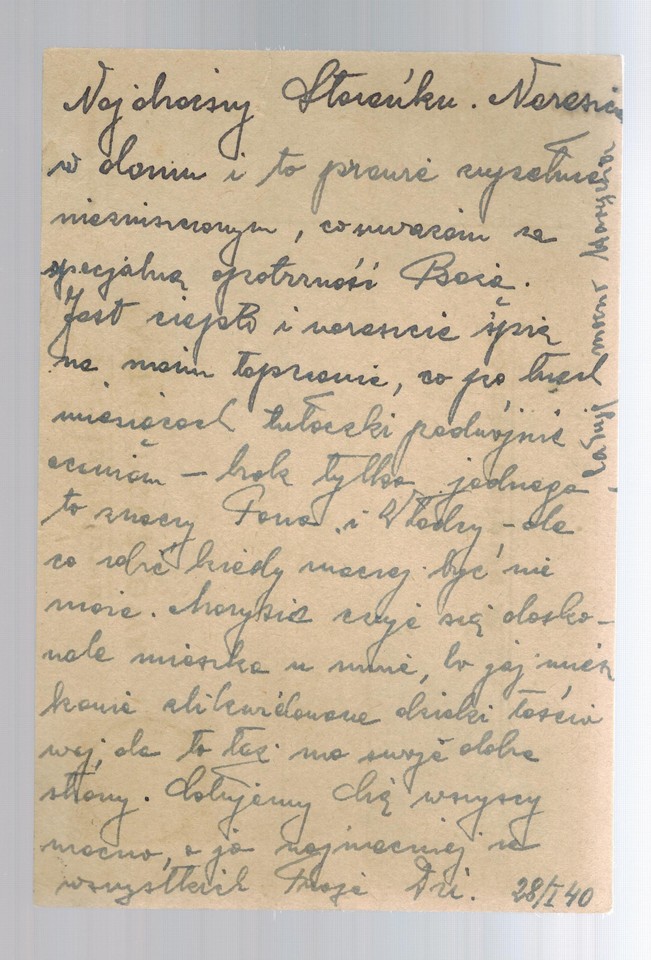 Najdroższy Staruńku. Nareszcie
w domu i to prawie zupełnie
niezniszczonym, co uważam za
specjalną opatrzność Boską.
Jest ciepło i nareszcie śpię
na moim tapczanie, co po trzech
miesiącach tułaczki podwójnie
oceniam – brak tylko jednego –
to znaczy Pana i Władzy – ale
co robić kiedy inaczej być nie
może. Marysia czuje się dosko-
nale mieszka u mnie, bo jej miesz
kanie zlikwidowane dzięki teścio
wej, ale to też ma swoje dobre
strony. Całujemy Cię wszyscy
mocno, a ja najmocniej ze
wszystkich Twoja
28/I 40
całuję mocno Marysia